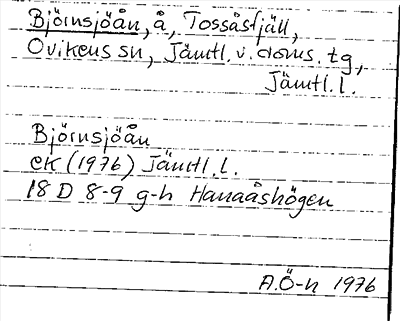 Björnsjöån, å, Tossåsfjäll,
Ovikens sn, Jämtl. v. doms. tg,
Jämtl. l.
Björnsjöån
ek (1976) Jämtl. l.
18 D 8-9 g-h Hanaåshögen
A.Ö-n 1976